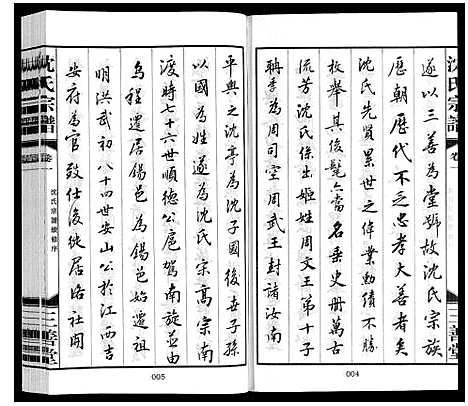 沈氏宗譜
卷一
三善堂
遂以三善為堂號故沈氏宗族
歷朝歷代不忘忠孝大善者矣
沈氏先賢累世之偉業勳績不勝
枚舉其後髦亦當名垂史册萬古
流芳沈氏係出姬姓周文王第十子
聃季為周司空周武王封諸汝南
004
平輿之沈亭為沈子國後世子孫
以國為姓遂為沈氏宗高宗南
渡時七十六世順德公扈駕南旋並由
烏程遷居錫邑為錫邑始遷祖
明洪武初八十四世安山公於江西吉
安府為官致仕後徙居洛社開
005
沈氏宗譜
卷一
沈氏宗譜續修序
三善堂